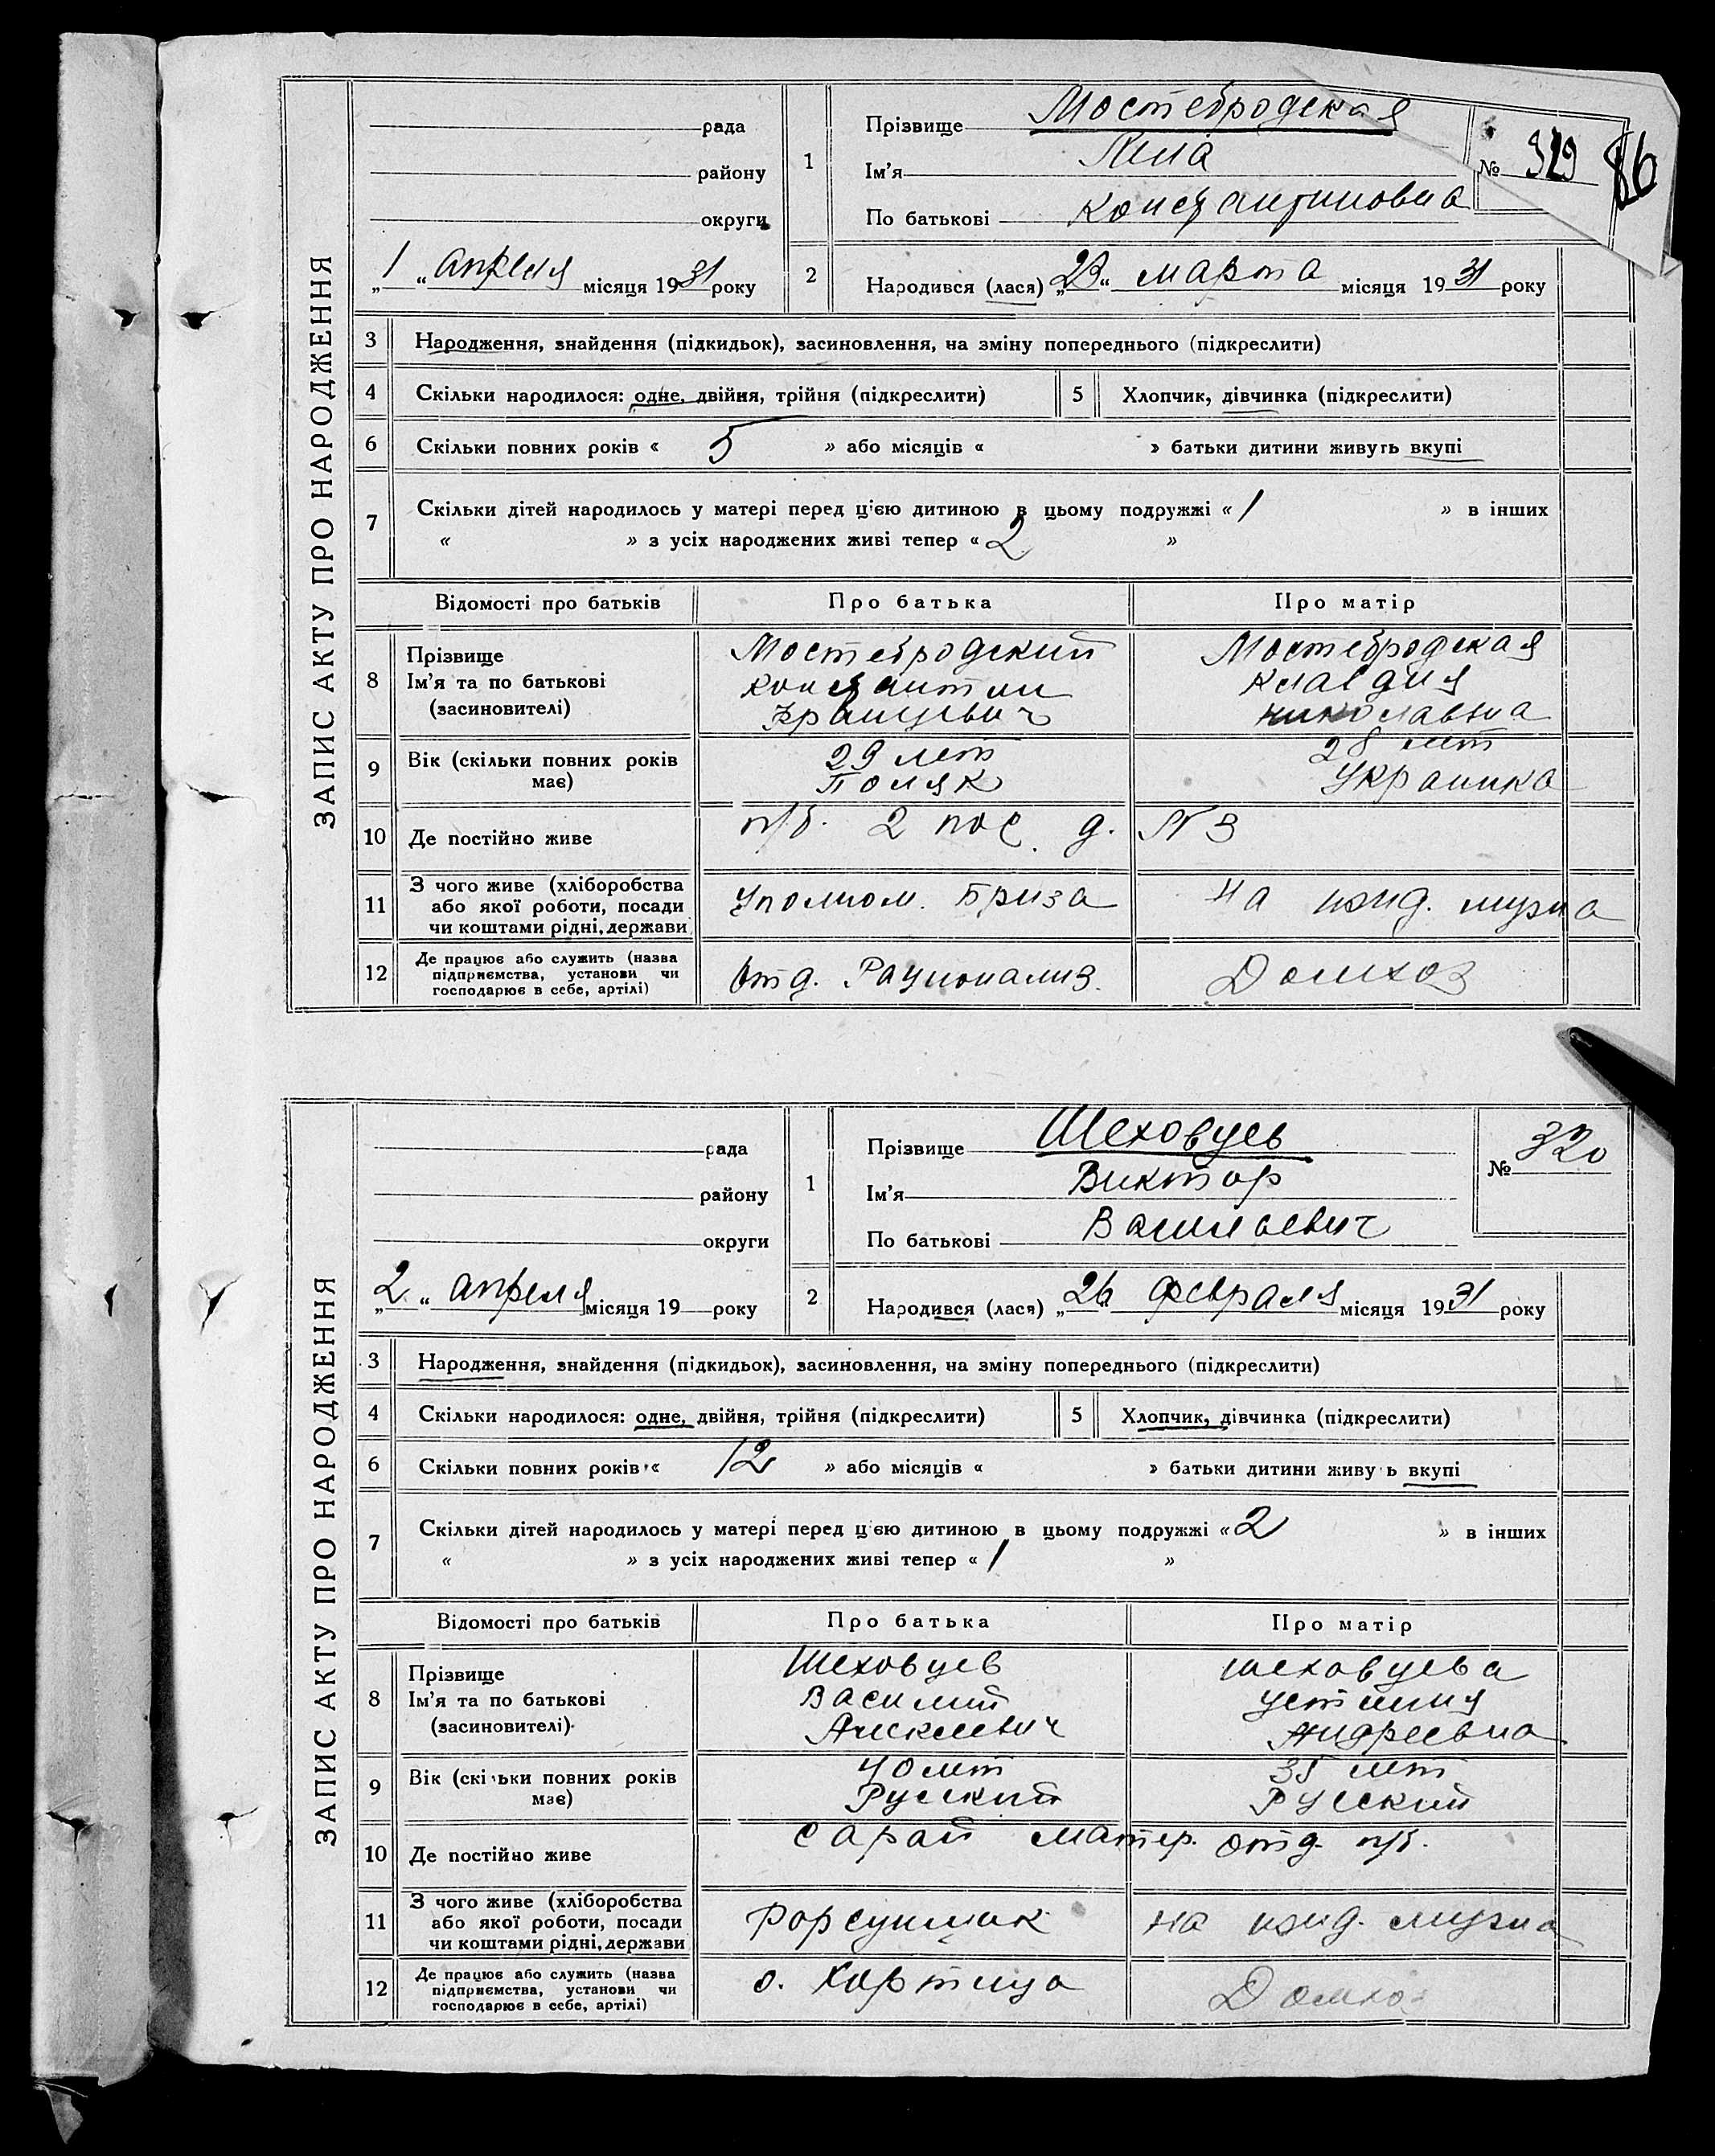 ЗАПИС АКТУ ПРО НАРОДЖЕННЯ
рада
району
округи
„1“ апреля місяця 1931 року
1
Прізвище Мостебродская
Ім'я
По батькові Константиновна
№ 319
86
2
Народився (лася) „23“ марта місяця 1931 року
3 Народження, знайдення (підкидьок), засиновлення, на зміну попереднього (підкреслити)
4 Скільки народилося: одне, двійня, трійня (підкреслити) 5 Хлопчик, дівчинка (підкреслити)
6 Скільки повних років « 5 » або місяців « » батьки дитини живуть вкупі
7 Скільки дітей народилось у матері перед цією дитиною в цьому подружжі « 1 » в інших
« » з усіх народжених живі тепер « 2 »
Відомості про батьків Про батька Про матір
8 Прізвище Ім'я та по батькові (засиновителі)
Мостебродский Константин Францевич
Мостебродская Клавдия Николавна
9 Вік (скільки повних років має)
29 лет Поляк
28 лет Украинка
10 Де постійно живе п/б. 2 пос. д. №3
11 З чого живе (хліборобства або якої роботи, посади чи коштами рідні, держави
Уполном. Бриза
на ижд. мужа
12 Де працює або служить (назва підприємства, установи чи господарює в себе, артілі)
Отд. Рационализ.
Домхоз
ЗАПИС АКТУ ПРО НАРОДЖЕННЯ
рада
району
округи
„2“ апреля місяця 19 року
1
Прізвище Шеховцев
Ім'я Виктор
По батькові Васильевич
№ 320
2
Народився (лася) „26 февраля місяця 1931 року
3 Народження, знайдення (підкидьок), засиновлення, на зміну попереднього (підкреслити)
4 Скільки народилося: одне, двійня, трійня (підкреслити) 5 Хлопчик, дівчинка (підкреслити)
6 Скільки повних років « 12 » або місяців « » батьки дитини живу ь вкупі
7 Скільки дітей народилось у матері перед цією дитиною в цьому подружжі « 2 » в інших
« » з усіх народжених живі тепер « 1 »
Відомості про батьків Про батька Про матір
8 Прізвище Ім'я та по батькові (засиновителі)
Шеховцев Василий
Шеховцева Устиния Андреевна
9 Вік (скільки повних років має)
40 лет Русский
35 лет Русский
10 Де постійно живе Сарай матер. отд. п/б.
11 З чого живе (хліборобства або якої роботи, посади чи коштами рідні, держави
Форсунщик
на ижд. мужа
12 Де працює або служить (назва підприємства, установи чи господарює в себе, артілі)
о. Хортица
Домхоз